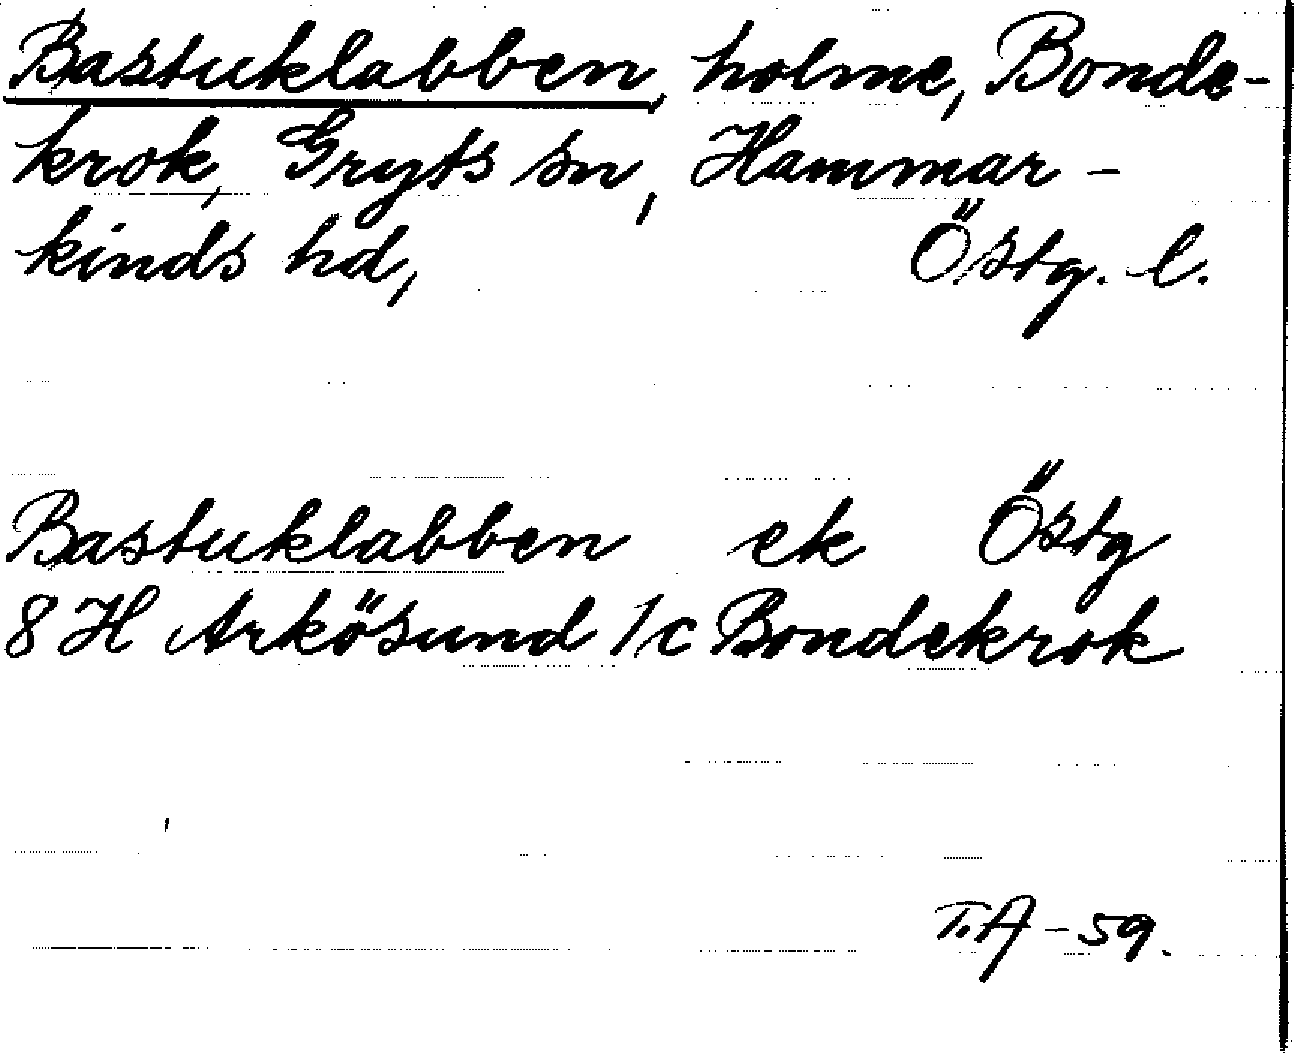 Bastuklabben, holme, Bonde-
krok, Gryts sn, Hammar-
kinds hd, Östg. l.
Bastuklabben ek Östg
8 H Arkösund 1/c Bondekrok
T.A-59.